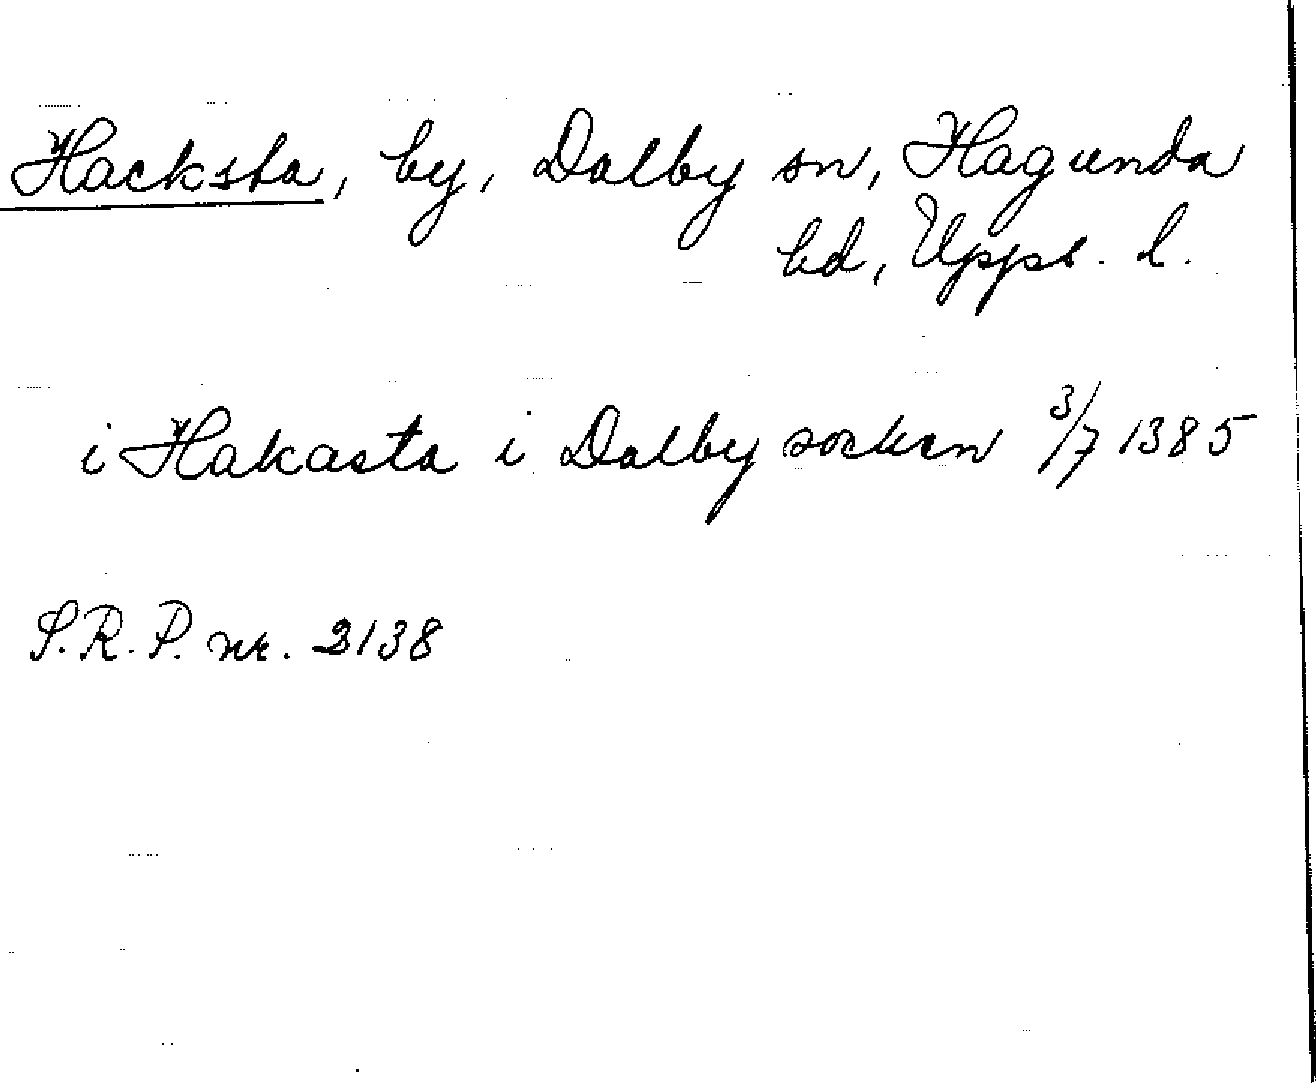 Hacksta, by, Dalby sn, Hagunda
hd, Upps. l.
i Hakasta i Dalby socken 3/7 1385
S.R.P. nr. 2138